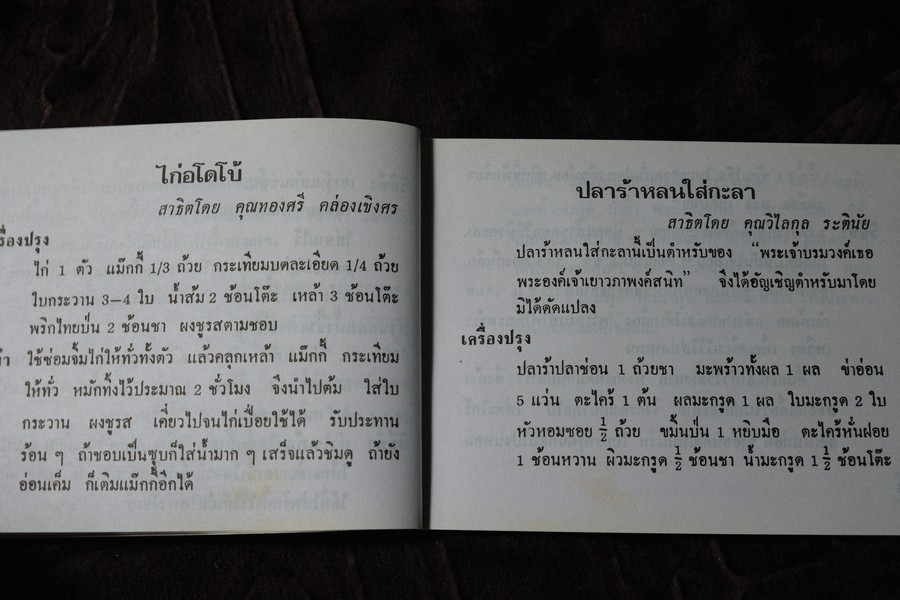 ไก่อโดโบ้
สาธิตโดย คุณทองศรี คล่องเชิงศร
รื่องปรุง
ไก่ 1 ตัว แม๊กกี้ 1/3 ถ้วย กระเทียมบดละเอียด 1/4 ถ้วย
ใบกระวาน 3—4 ใบ น้ำส้ม 2 ช้อนโต๊ะ เหล้า 3 ช้อนโต๊ะ
พริกไทยป่น 2 ช้อนชา ผงชูรสตามชอบ
ใช้ซ่อมจิ้มไก่ให้ทั่วทั้งตัว แล้วคลุกเหล้า แม๊กกี้ กระเทียม
ให้ทั่ว หมักทิ้งไว้ประมาณ 2 ชั่วโมง จึงนำไปต้ม ใส่ใบ
กระวาน ผงชูรส เคี่ยวไปจนไก่เปื่อยใช้ได้ รับประทาน
ร้อน ๆ ถ้าชอบเป็นซุบก็ใส่น้ำมาก ๆ เสร็จแล้วชิมดู ถ้ายัง
อ่อนเค็ม ก็เติมแม๊กกี้อีกได้
ปลาร้าหลนใส่กะลา
สาธิตโดย คุณวิไลกุล ระตินัย
ปลาร้าหลนใส่กะลานี้เป็นตำหรับของ “พระเจ้าบรมวงศ์เธอ
พระองค์เจ้าเยาวภาพงศ์สนิท” จึงได้อัญเชิญตำหรับมาโดย
มิได้ดัดแปลง
เครื่องปรุง
ปลาร้าปลาช่อน 1 ถ้วยชา มะพร้าวทั้งผล 1 ผล ข่าอ่อน
5 แว่น ตะไคร้ 1 ต้น ผลมะกรูด 1 ผล ใบมะกรูด 2 ใบ
หัวหอมซอย ½ ถ้วย ขมิ้นป่น 1 หยิบมือ ตะไคร้หั่นฝอย
1 ช้อนหวาน ผิวมะกรูด ½ ช้อนชา น้ำมะกรูด 1 ½ ช้อนโต๊ะ